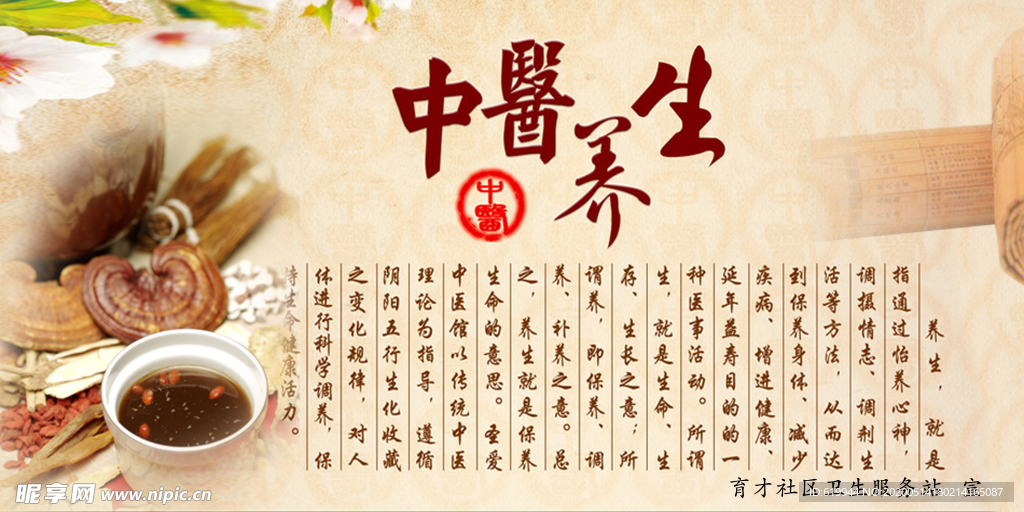 中醫养生
中醫
养生，就是
指通过怡养心神，
调摄情志、调剂生
活等方法，从而达
到保养身体、减少
疾病、增进健康、
延年益寿目的的一
种医事活动。所谓
生，就是生命、生
存、生长之意；所
谓养，即保养、调
养、补养之意。总
之，养生就是保养
生命的意思。圣爱
中医馆以传统中医
理论为指导，遵循
阴阳五行生化收藏
之变化规律，对人
体进行科学调养，保
持生命健康活力。
育才社区卫生服务站 宣
昵享网 www.nipic.cn